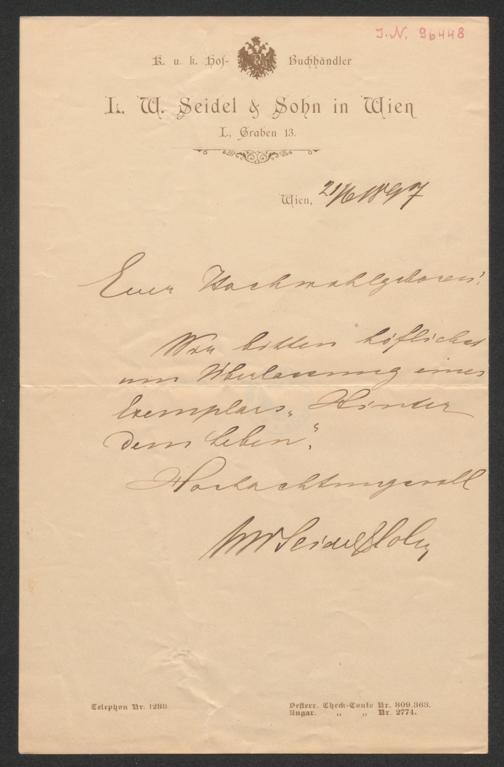 J.N. 96448
K. u. k. Hof- Buchhändler
L. W. Seidel & Sohn in Wien
I., Graben 13.
Wien, 21/6 1897
Euer Hochwohlgeboren!
Wir bitten höflichst
um Überlassung eines
Exemplars „Hinter
dem Leben".
Hochachtungsvoll
LW Seidel & Sohn
Telephon Nr. 1280.
Oesterr. Check-Conto Nr. 809.363.
Ungar. „ „ Nr. 2774.